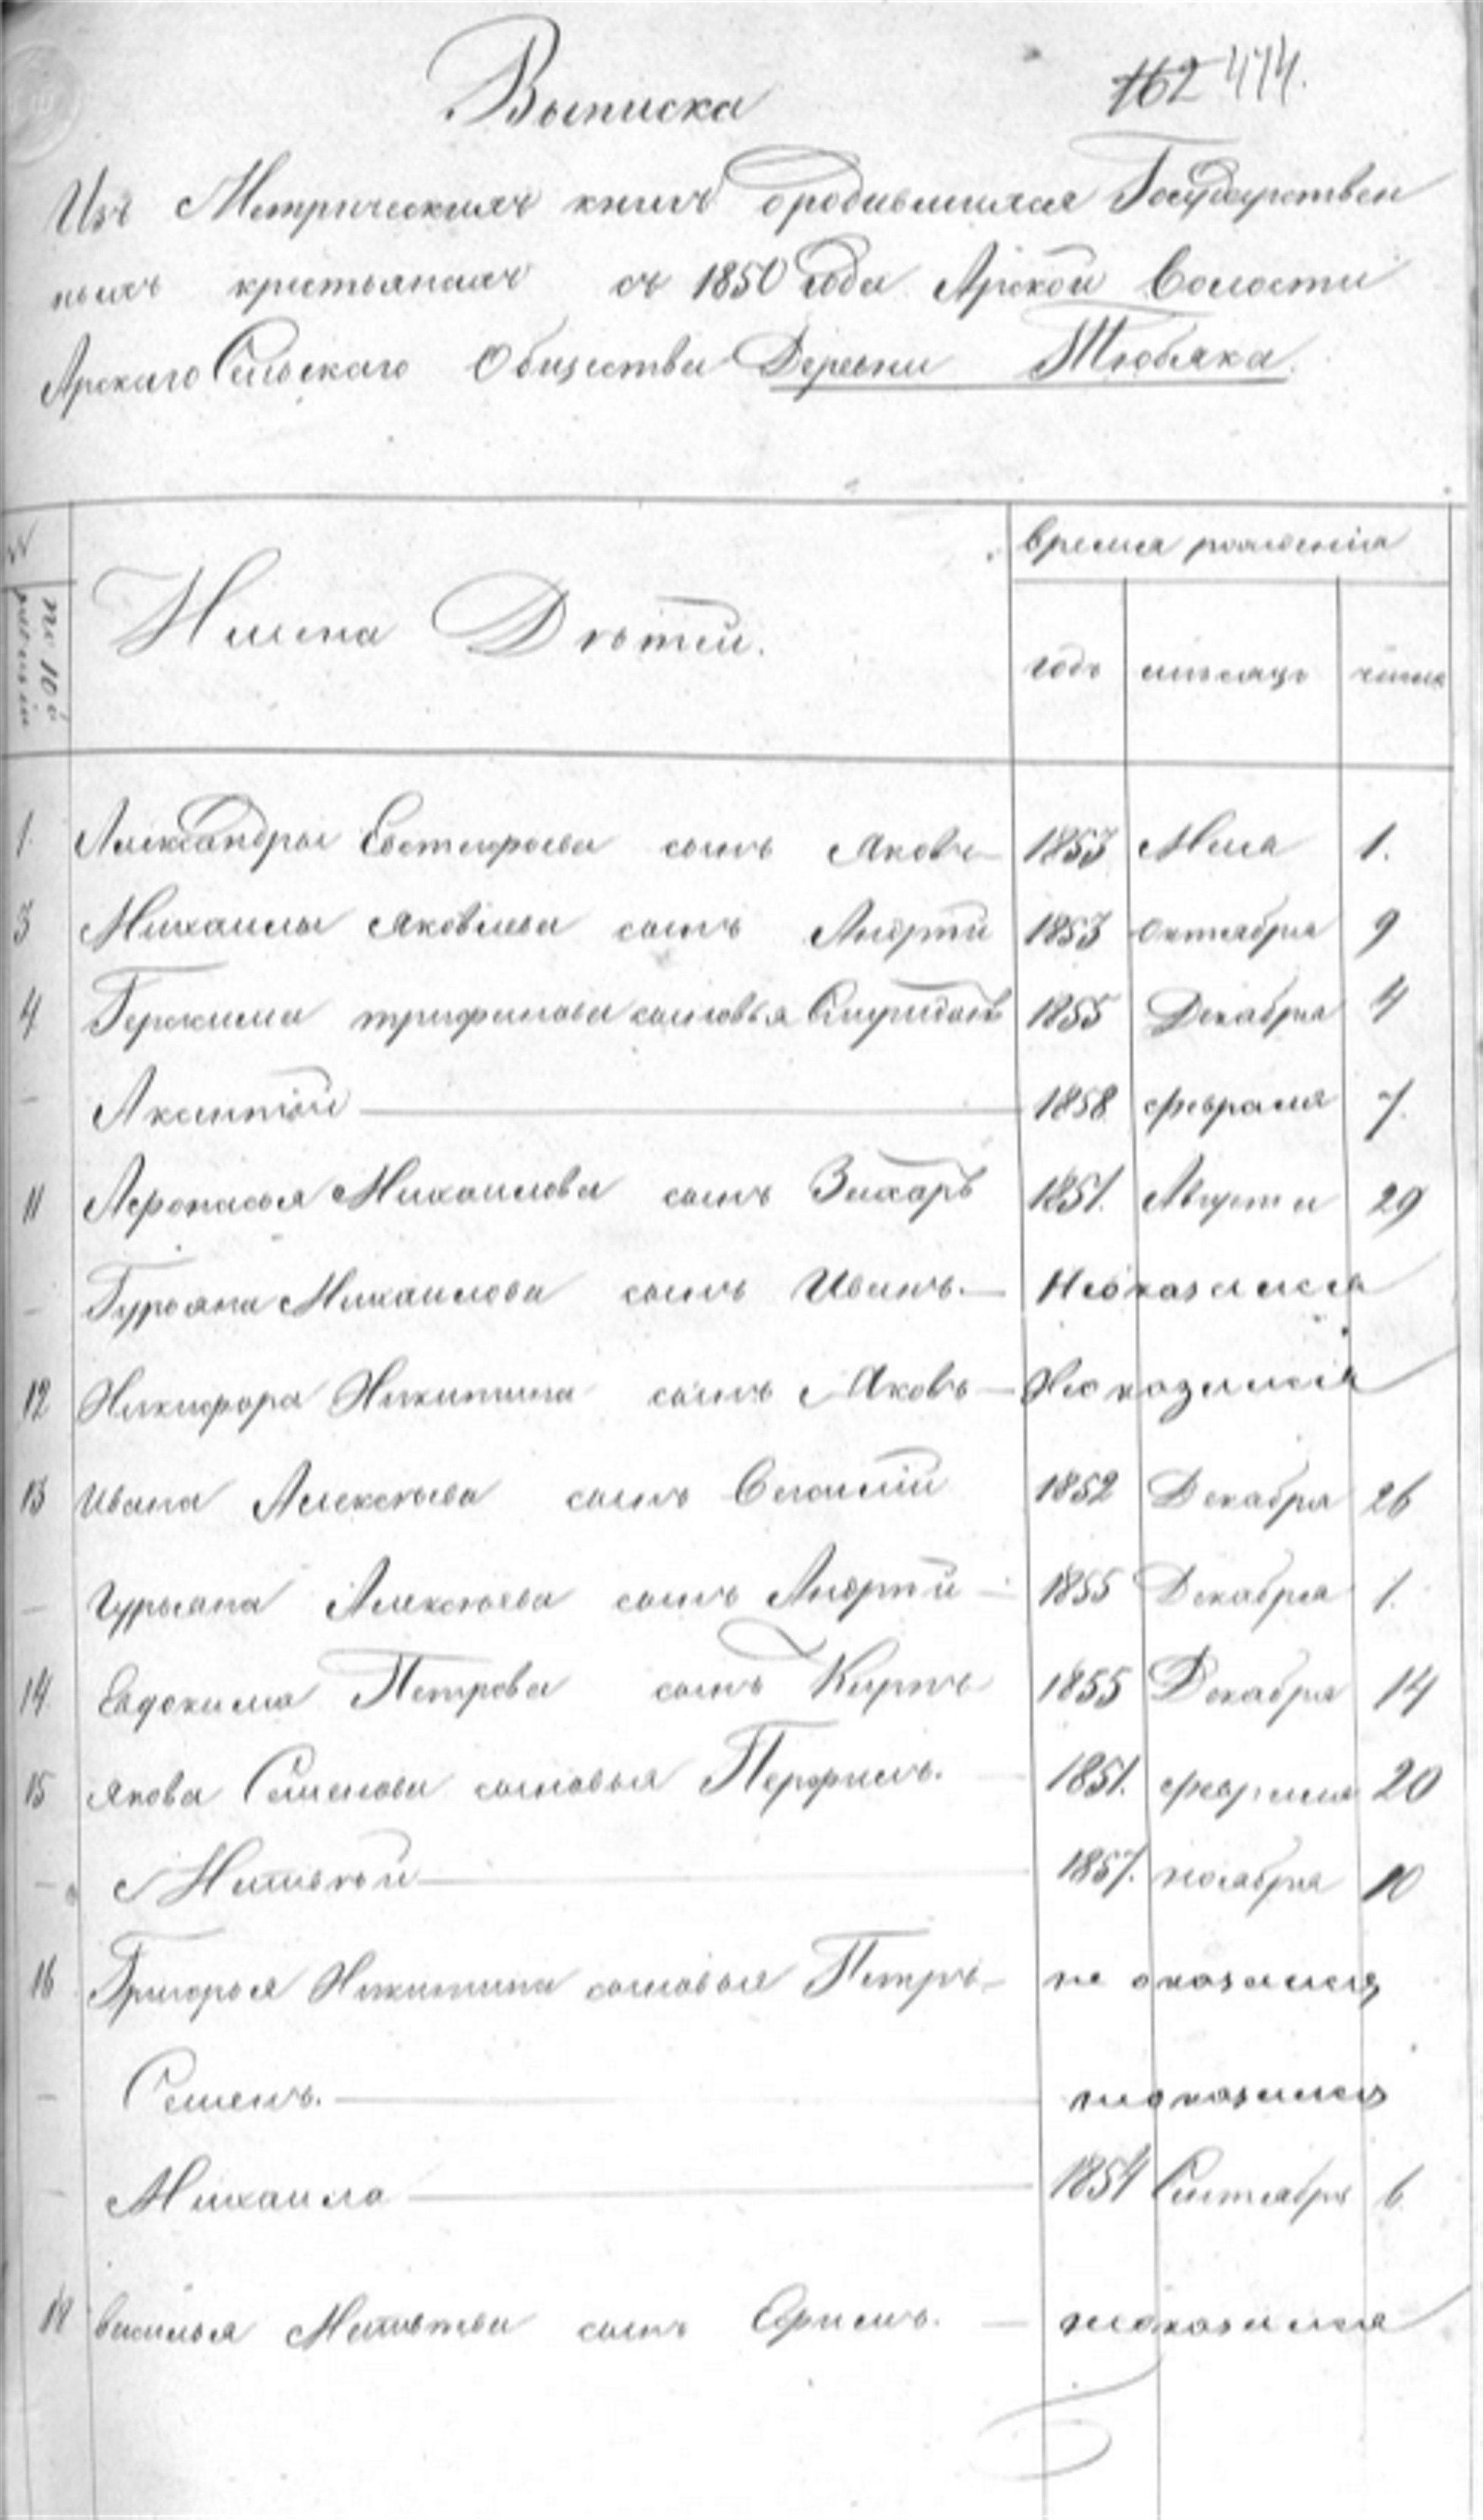 Выписка
162 414.
Изъ Метрическихъ книгъ ородившихся Государствен
ныхъ крестьянахъ съ 1850 года Арской Волости
Арскаго Сельскаго Общества Деревни Тюбяка.
№
по 10й
ревизіи
Имена Дѣтей.
время рожденія
годъ мѣсяцъ число
1. Александры Евстифѣева сынъ Яковъ 1853 Мая 1.
3 Михаилы Яковлева сынъ Андрѣй 1853 Октября 9
4 Герасима трифонова сыновья Спиридонъ 1855 Декабря 4
— Аксинтій — 1858 февраля 7.
11 Афонасья Михаилова сынъ Захаръ 1851. Августа 29
— Гурьяна Михаилова сынъ Иванъ. — Неоказался
12 Никифора Никитина сынъ Яковъ — Неоказался
13 Ивана Алексѣева сынъ Василій 1852 Декабря 26
— Гурьяна Алексѣева сынъ Андрѣй — 1855 Декабря 1.
14 Евдокима Петрова сынъ Карпъ 1855 Декабря 14
15 Якова Семенова сыновья Перфилъ. 1851. февраля 20
— Матвѣй — 1857. ноября 10
16 Григорья Никитина сыновья Петръ — не оказался
— Семенъ. — неоказался
— Михаила — 1854 Сентября 6
19 василья Матвѣева сынъ Ефимъ. — неоказался